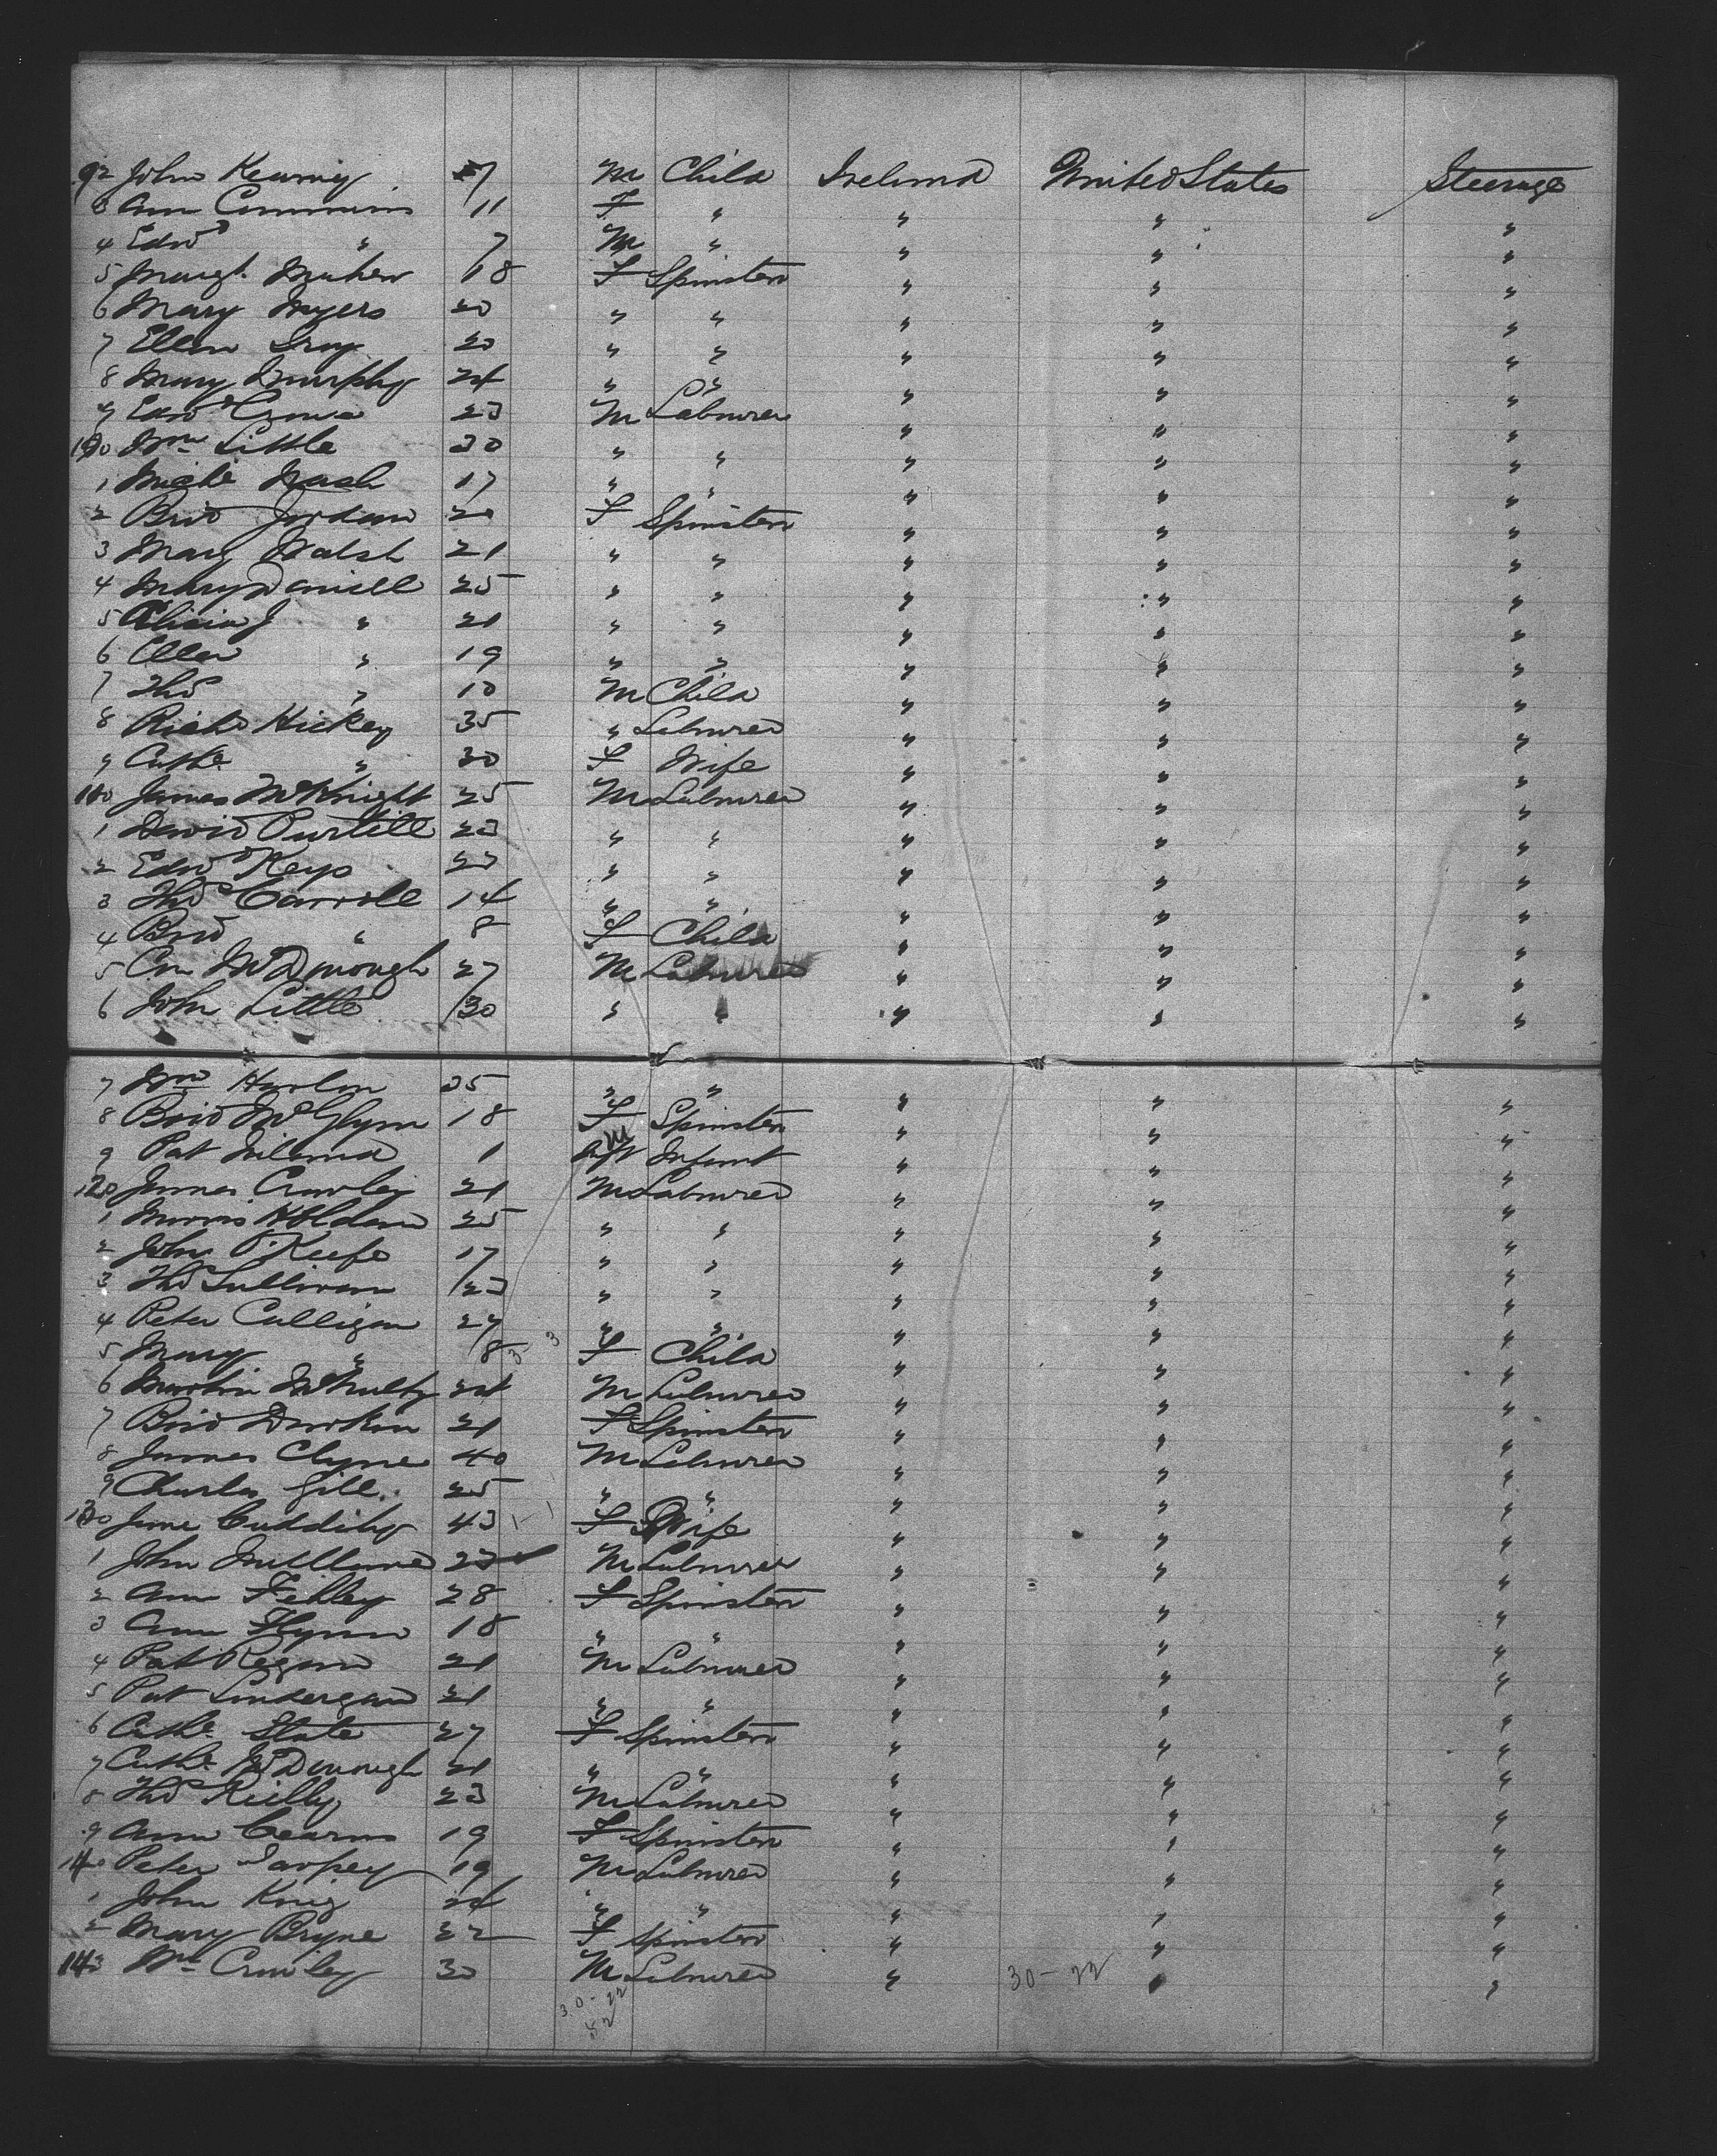 92 John Kearney 7 M Child Ireland United States Steerage
3 Ann Commins 11 F " " " "
4 Edwd " 7 M " " " "
5 Margt Maher 18 F Spinster " " "
6 Mary Myers 20 " " " " "
7 Ellen 20 " " " " "
8 Mary Murphy 24 " " " " "
9 Edwd Crowe 23 M Labourer " " "
100 Wm Little 30 " " " " "
1 Michl Nash 17 " " " " "
2 Brid Jordan 20 F Spinster " " "
3 Mary Walsh 21 " " " " "
4 Mary Daniell 25 " " " " "
5 Alicia J " 21 " " " " "
6 Ellen " 19 " " " " "
7 Thos " 10 M Child " " "
8 Richd Hickey 35 " Labourer " " "
9 Cathe " 30 F Wife " " "
110 James McKnight 25 M Labourer " " "
1 David Purtill 23 " " " " "
2 Edwd Keys 23 " " " " "
3 Thos Carroll 14 " " " " "
4 Brid " 8 F Child " " "
5 Con McDonough 27 M Labourer " " "
6 John Little 30 " " " " "
7 Wm Hanlon 25 " " " " "
8 Brid McGlynn 18 F Spinster " " "
9 Pat 1 M Infant " " "
120 James Crowley 21 M Labourer " " "
1 Morris Holden 25 " " " " "
2 John O'Keefe 17 " " " " "
3 Thos Sullivan 23 " " " " "
4 Peter Culligan 27 " " " " "
5 Mary " 8 F Child " " "
6 Martin McNulty 24 M Labourer " " "
7 Brid Durkin 21 F Spinster " " "
8 James Clyne 40 M Labourer " " "
9 Charles Gill 25 " " " " "
130 Jane Cuddihy 43 F Wife " " "
1 John Mullane 23 M Labourer " " "
2 Ann Fehley 28 F Spinster " " "
3 Ann Flynn 18 " " " " "
4 Pat Regan 21 M Labourer " " "
5 Pat Londergan 21 " " " " "
6 Cathe State 27 F Spinster " " "
7 Cathe McDonough 21 " " " " "
8 Thos Rielly 23 M Labourer " " "
9 Ann Cearns 19 F Spinster " " "
140 Peter Tarpey 19 M Labourer " " "
1 John King 24 " " " " "
2 Mary Bryne 22 F Spinster " " "
143 Wm Crowley 30 M Labourer " 30-22 " "
30-22